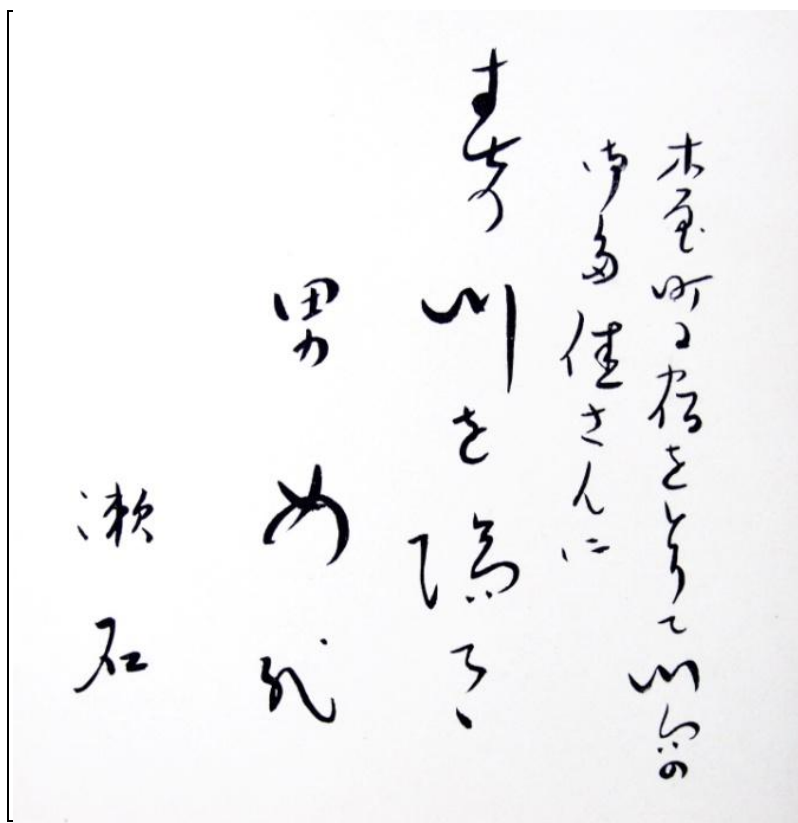 木屋町に宿をとりて川向の
御多佳さんに
春の川を隔てゝ
男女哉
漱石